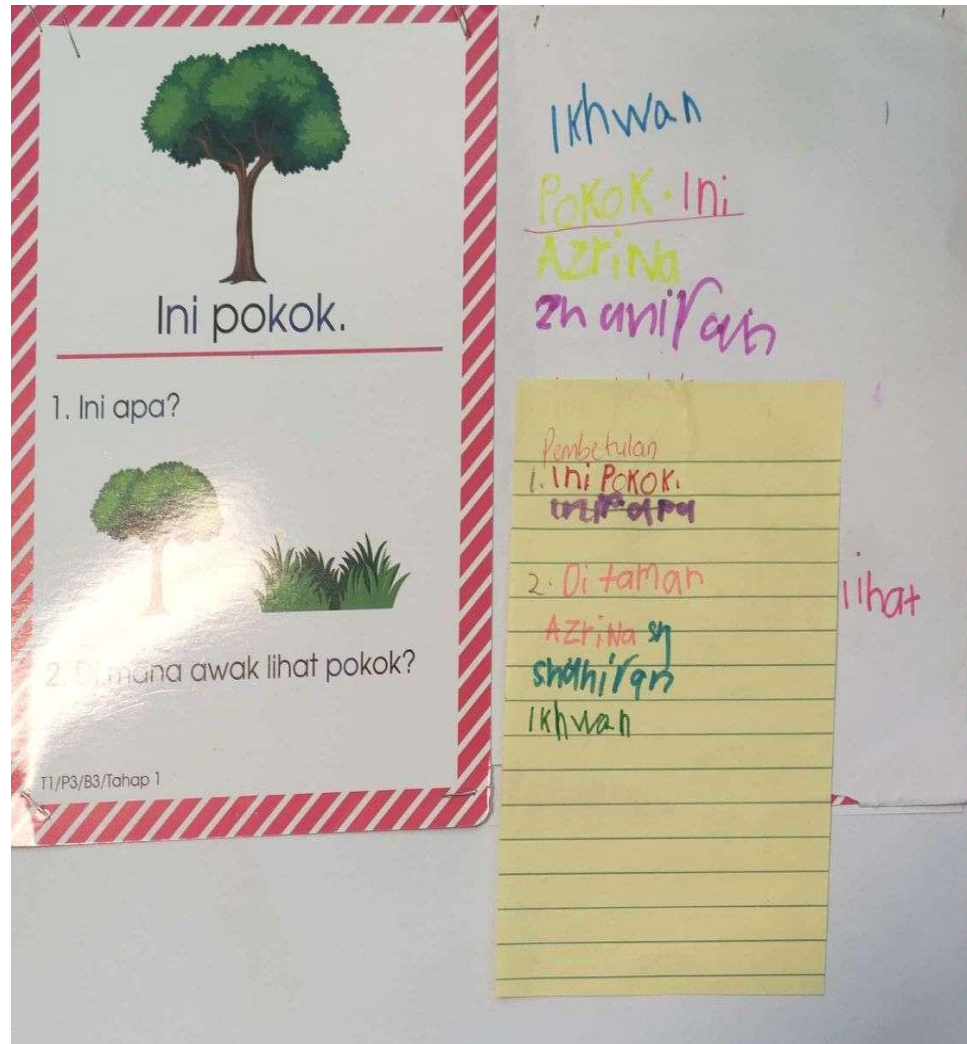 Ini pokok.
1. Ini apa?
2. Di mana awak lihat pokok?
T1/P3/B3/Tahap 1
Ikhwan
Pokok. Ini
Azrina
Pembetulan
1. Ini Pokok.
2. Di taman
Azrina sh
shahiran
Ikhwan
lihat